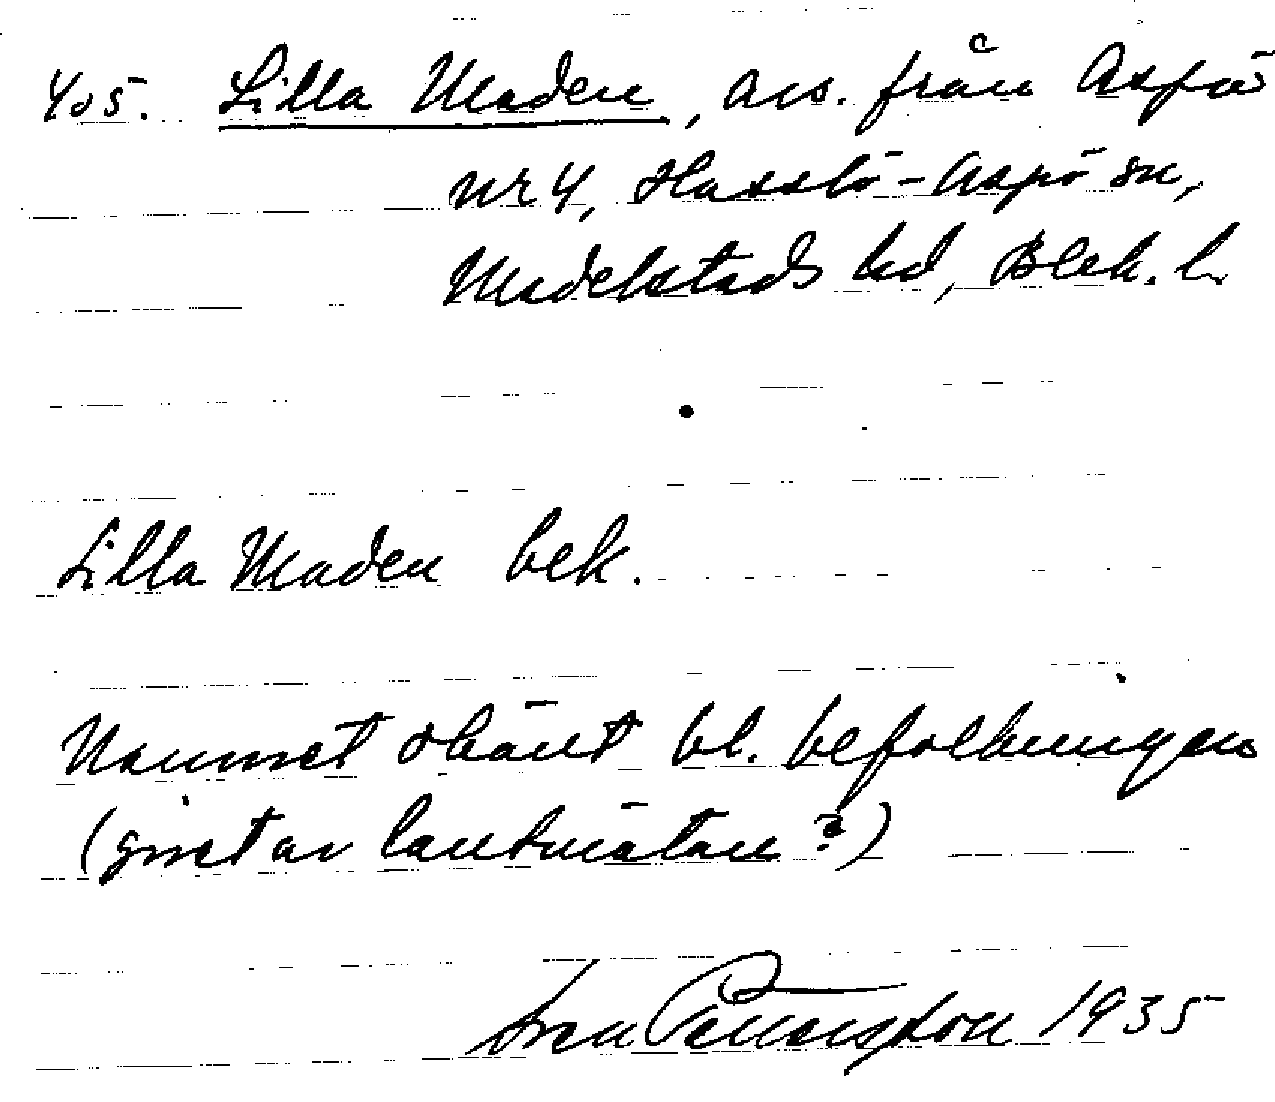 405. Lilla Maden, avs. från Aspö
nr 4, Hasslö-Aspö sn,
Medelstads hd, Blek. l.
Lilla Maden bek.
Namnet okänt bl. befolkningen
(givet av lantmätaren?)
Sven Pettersson 1935